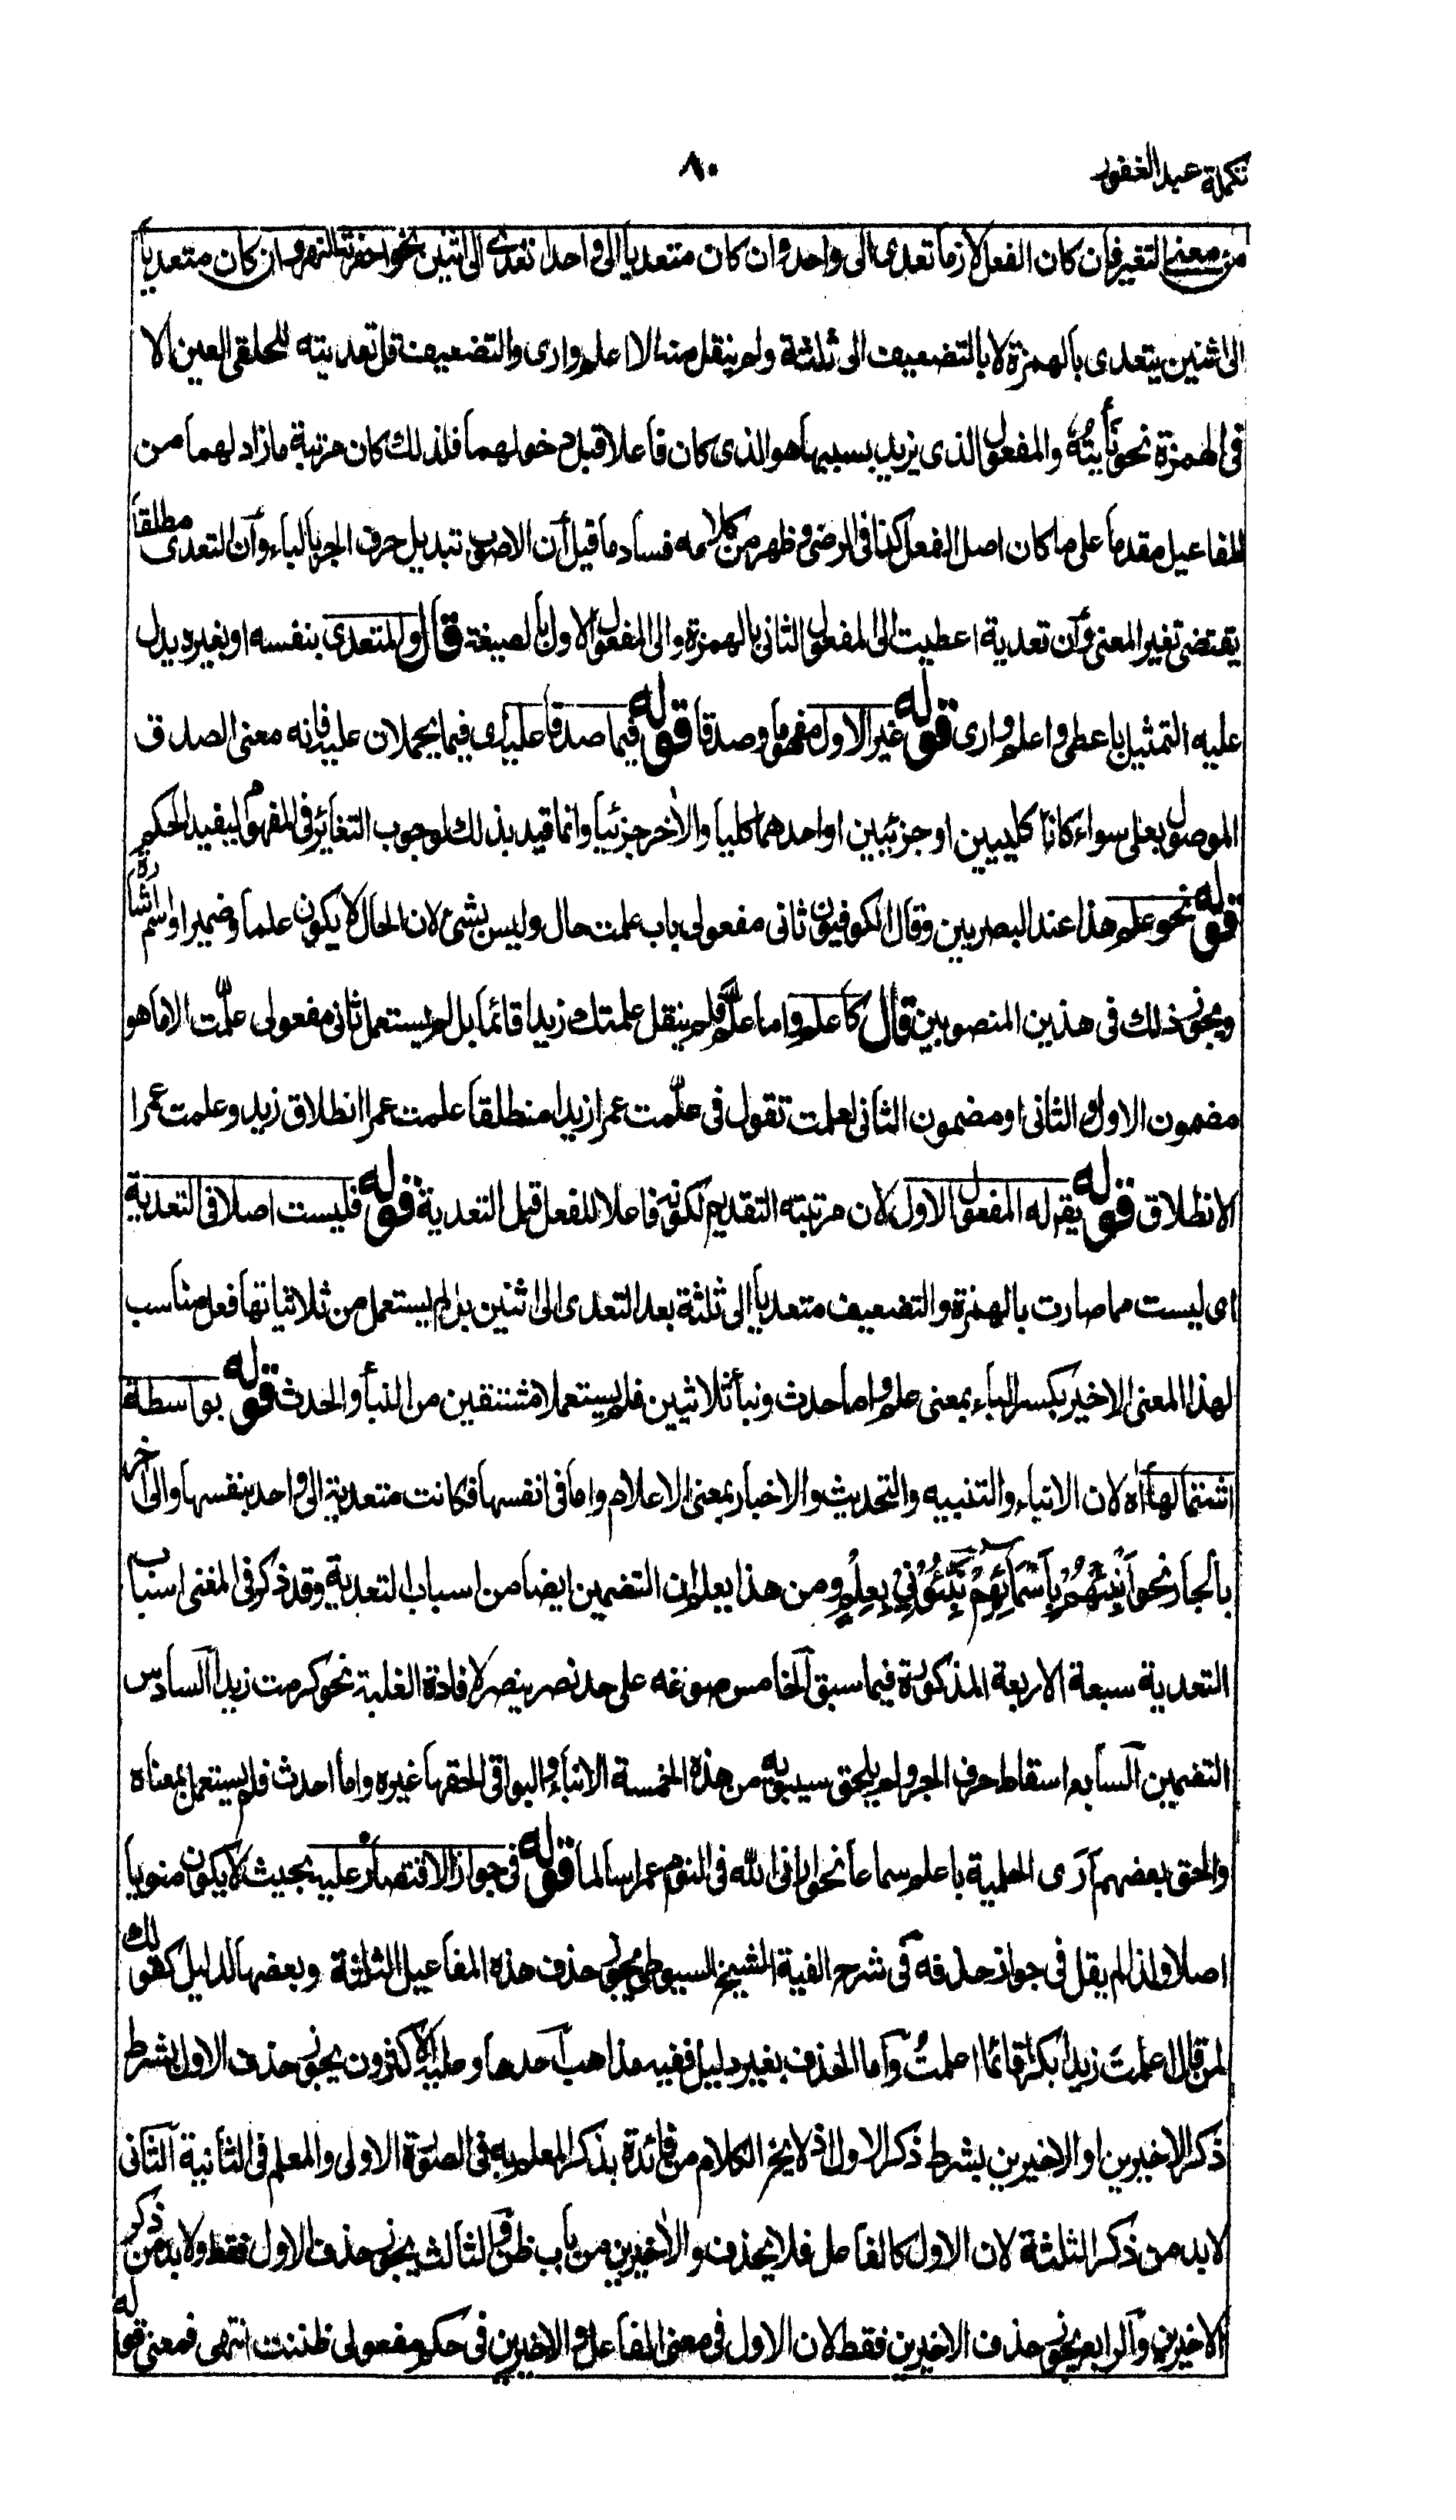 تكملة عبد الغفور
٨٠
من معنى التغير فان كان الفعل لازما تعدى الى واحد وان كان متعديا الى واحد تعدى الى اثنين نحو احفرته النهر وان كان متعديا
الى اثنين يتعدى بالهمزة لا بالتضعيف الى ثلثة ولم ينقل منه الا اعلم وارى والتضعيف قل تعديته للحلقى العين الا
فى الهمزة نحو نأيته والمفعول الذى يزيد بسببها هو الذى كان فاعلا قبل دخولهما فلذلك كان مرتبة ما زاد لهما من
المفاعيل مقدما على ما كان اصل الفعل كذا فى الرضى وظهر من كلامه فساد ما قيل أن الاصوب تبديل حرف الجر بالباء وأن التعدى مطلقا
يقتضى تغير المعنى وأن تعدية اعطيت الى المفعول الثانى بالهمزة والى المفعول الاول بالصيغة قال والمتعدى بنفسه او بغيره يدل
عليه التمثيل باعطى واعلم وارى قوله غير الاول مفهوما وصدقا قوله فيما صدقا عليه اى فيما يحملان عليه فانه معنى الصدق
الموصول بعلى سواء كانا كليين او جزئيين او احدهما كليا والاٰخر جزئيا وانما قيد بذلك لوجوب التغاير فى المفهوم ليفيد الحكم
قوله نحو علم هذا عند البصريين وقال الكوفيون ثانى مفعولى باب علمت حال وليس بشئ لان الحال لا يكون علما وضميرا واسم اشارة
ويجوز ذلك فى هذين المنصوبين قال كاعلم واما علّم فلم ينقل علمتك زيدا قائما بل لم يستعمل ثانى مفعولى علّمت الا ما هو
مضمون الاول والثانى او مضمون الثانى لعلمت تقول فى علّمت عمرا زيدا منطلقا علمت عمرا انطلاق زيد وعلمت عمرا
الانطلاق قوله يقر له المفعول الاول لان مرتبته التقديم لكونه فاعلا للفعل قبل التعدية قوله فليست اصلا فى التعدية
اى ليست مما صارت بالهمزة والتضعيف متعديا الى ثلثة بعد التعدى الى اثنين بل لم يستعمل من ثلاثياتها فعل مناسب
لهذا المعنى الا خبر بكسر الباء بمعنى علم واما حدث ونبأ ثلاثيين فلم يستعملا مشتقين من النبأ والحدث قوله بواسطة
اشتمالها اه لان الانباء والتنبيه والتحديث والاخبار بمعنى الاعلام واما فى انفسها فكانت متعدية الى واحد بنفسها والى اٰخر
بالجار نحو أَنْبِئْهُمْ بِأَسْمَائِهِمْ نَبِّئُوْنِيْ بِعِلْمٍ ومن هذا يعلم ان التضمين ايضا من اسباب التعدية وقد ذكر فى المغنى اسباب
التعدية سبعة الاربعة المذكورة فيما سبق الخامس صوغه على حد نصر ينصر لافادة الغلبة نحو كرمت زيدا السادس
التضمين السابع اسقاط حرف الجر ولم يلحق سيبويه من هذه الخمسة الا نبأ والبواقى الحقها غيره واما احدث فلم يستعمل بمعناه
والحق بعضهم أرى الحلمية باعلم سماعا نحو ارانى الله فى النوم عمرا سالما قوله فى جواز الاقتصار عليه بحيث لا يكون منويا
اصلا ولذا لم يقل فى جواز حذفه فى شرح الفية الشيخ السيوطى يجوز حذف هذه المفاعيل الثلثة وبعضها لدليل كقولك
لمن قال اعلمت زيدا بكرا قائما اعلمتُ وأما الحذف بغير دليل ففيه مذاهب أحدها وعليه الاكثرون يجوز حذف الاول بشرط
ذكر الاخيرين او الاخيرين بشرط ذكر الاول اذ لا يخ الكلام من فائدة بذكر المعلم به فى الصورة الاولى والمعلم فى الثانية الثانى
لا بد من ذكر الثلثة لان الاول كالفاعل فلا يحذف والاٰخيرين من باب ظن والثالث يجوز حذف الاول فقط ولا بد من ذكر
الاخيرين والرابع يجوز حذف الاخيرين فقط لان الاول فى معنى الفاعل والاخيرين فى حكم مفعولى ظننت انتهى فمعنى قوله